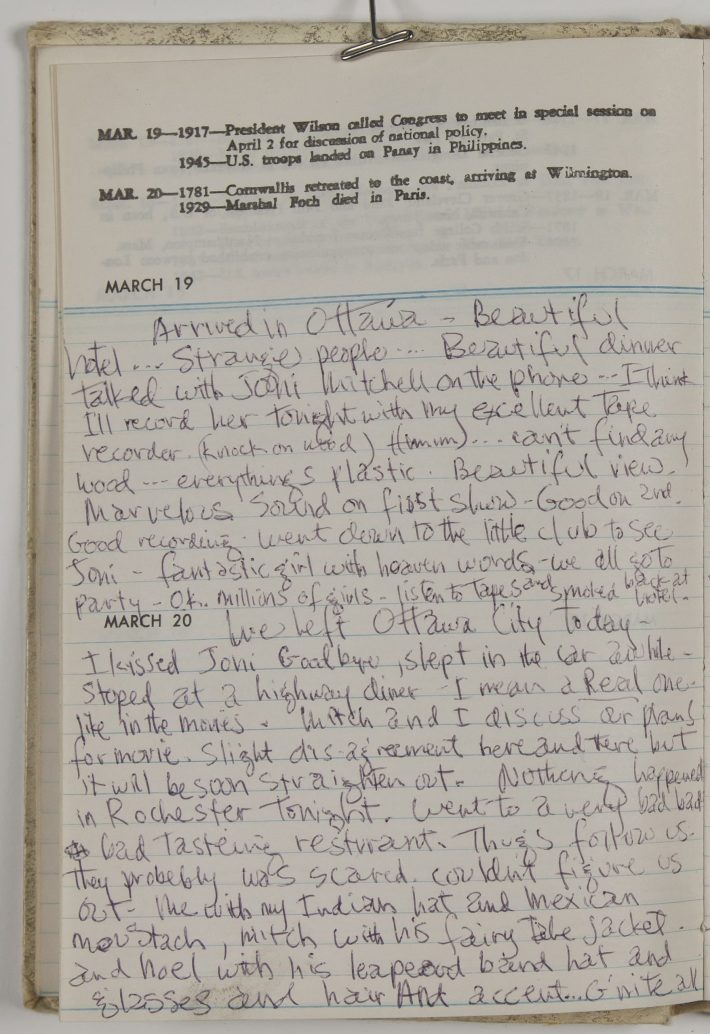 MAR. 19—1917—President Wilson called Congress to meet in special session on
April 2 for discussion of national policy.
1945—U.S. troops landed on Panay in Philippines.
MAR. 20—1781—Cornwallis retreated to the coast, arriving at Wilmington.
1929—Marshal Foch died in Paris.
MARCH 19
Arrived in Ottawa - Beautiful
hotel ... Strange people ... Beautiful dinner
talked with Joni Mitchell on the phone ... I think
I'll record her tonight with my excellent Tape
recorder (knock on wood) (hmmm) ... can't find any
wood --- everythings plastic. Beautiful view.
Marvelous Sound on first show - Good on 2nd.
Good recording. went down to the little club to see
Joni - fantastic girl with heaven words - we all go to
party - OK. millions of girls - listen to Tapes and smoked back at
hotel -
MARCH 20
We Left Ottawa City Today -
I kissed Joni Goodbye, slept in the car awhile -
Stoped at a highway diner - I mean a Real one
like in the movies. Mitch and I discuss our plans
for movie. Slight dis-agreement here and there but
it will be soon straighten out. Nothing happened
in Rochester Tonight. Went to a very bad bad
bad tasteing resturant. Thugs follow us.
They probebly was scared. couldn't figure us
out - me with my Indian hat and Mexican
moustach, mitch with his fairy Tale jacket.
and Noel with his leapeard band hat and
glasses and hair And accent... G'nite all